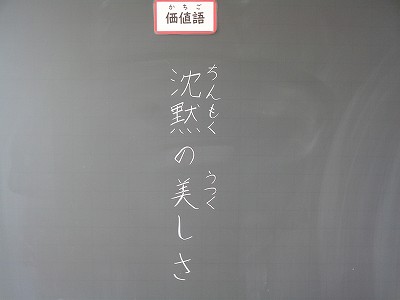 かちご
価値語
ちんもく うつく
沈黙の美しさ